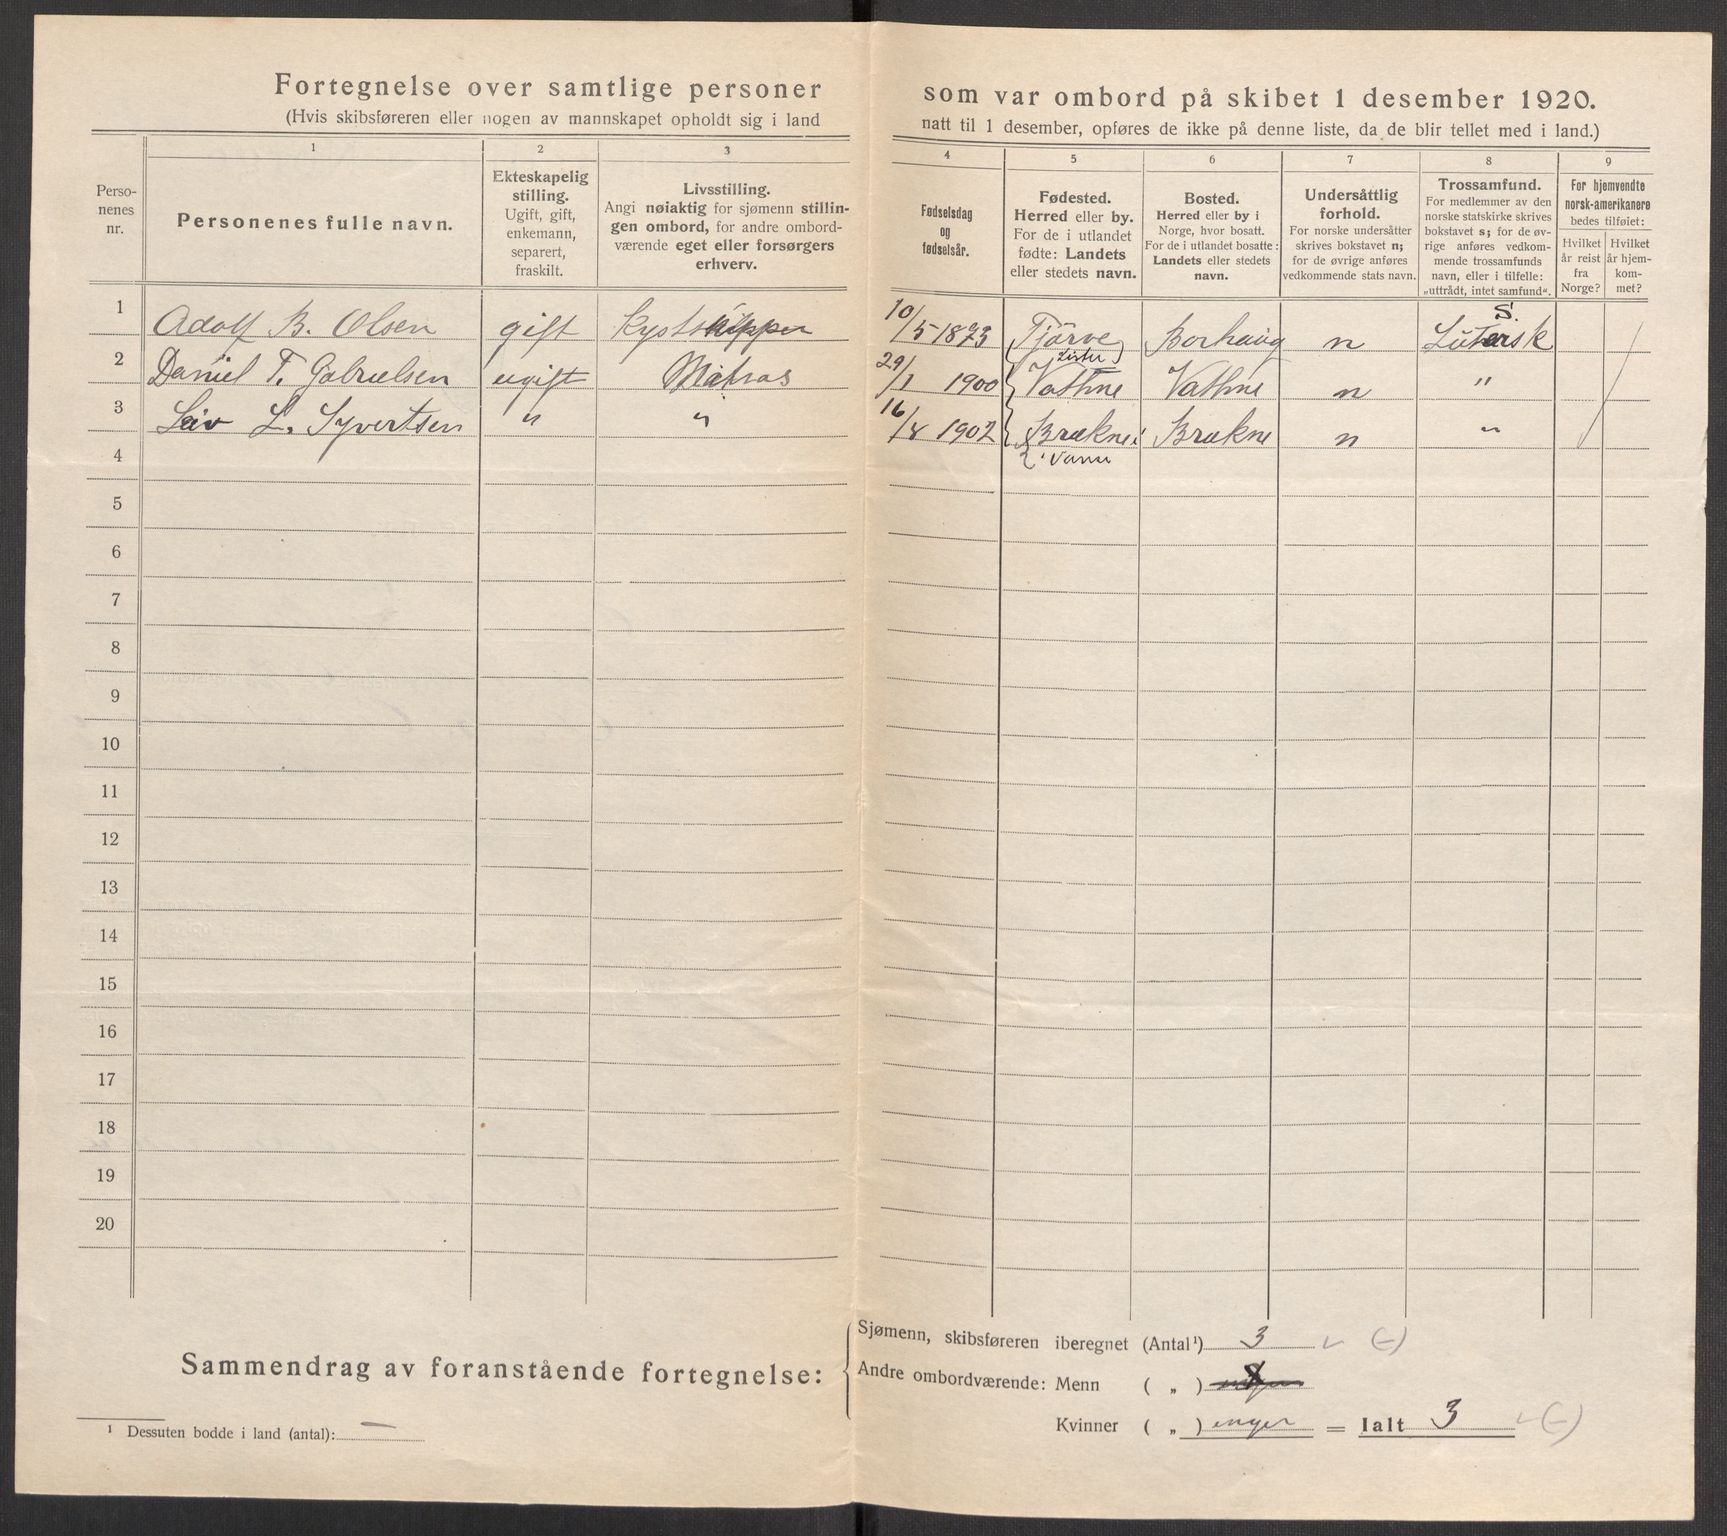 Fortegnelse over samtlige personer som var ombord på skibet 1 desember 1920.
(Hvis skibsføreren eller nogen av mannskapet opholdt sig i land natt til 1 desember, opføres de ikke på denne liste, da de blir tellet med i land.)
1 2 3 4 5 6 7 8 9
Perso-
nenes
nr.
Personenes fulle navn.
Ekteskapelig
stilling.
Ugift, gift,
enkemann,
separert,
fraskilt.
Livsstilling.
Angi nøiaktig for sjømenn stillin-
gen ombord, for andre ombord-
værende eget eller forsørgers
erhverv.
Fødselsdag
og
fødselsår.
Fødested.
Herred eller by.
For de i utlandet
fødte: Landets
eller stedets navn.
Bosted.
Herred eller by i
Norge, hvor bosatt.
For de i utlandet bosatte:
Landets eller stedets
navn.
Undersåttlig
forhold.
For norske undersåtter
skrives bokstavet n;
for de øvrige anføres
vedkommende stats navn.
Trossamfund.
For medlemmer av den
norske statskirke skrives
bokstavet s; for de øv-
rige anføres vedkom-
mende trossamfunds
navn, eller i tilfelle:
„uttrådt, intet samfund“.
For hjemvendte
norsk-amerikanere
bedes tilføiet:
Hvilket
år reist
fra
Norge?
Hvilket
år hjem-
kom-
met?
S.
1 Adolf B. Olsen gift Kystskipper 10/5 1873 Tjörve Borhaug n Lutersk
(Lister)
2 Daniel T. Gabrielsen ugift Matros 29/1 1900 Vathne Vathne n "
3 L. Syvertsen " " 16/8 1902 Brekne Brekne n "
4
5
6
7
8
9
10
11
12
13
14
15
16
17
18
19
20
Sammendrag av foranstående fortegnelse:
Sjømenn, skibsføreren iberegnet (Antal¹) 3 (-)
Andre ombordværende: Menn ( „ )
Kvinner ( „ ) = Ialt 3 (-)
¹ Dessuten bodde i land (antal): —